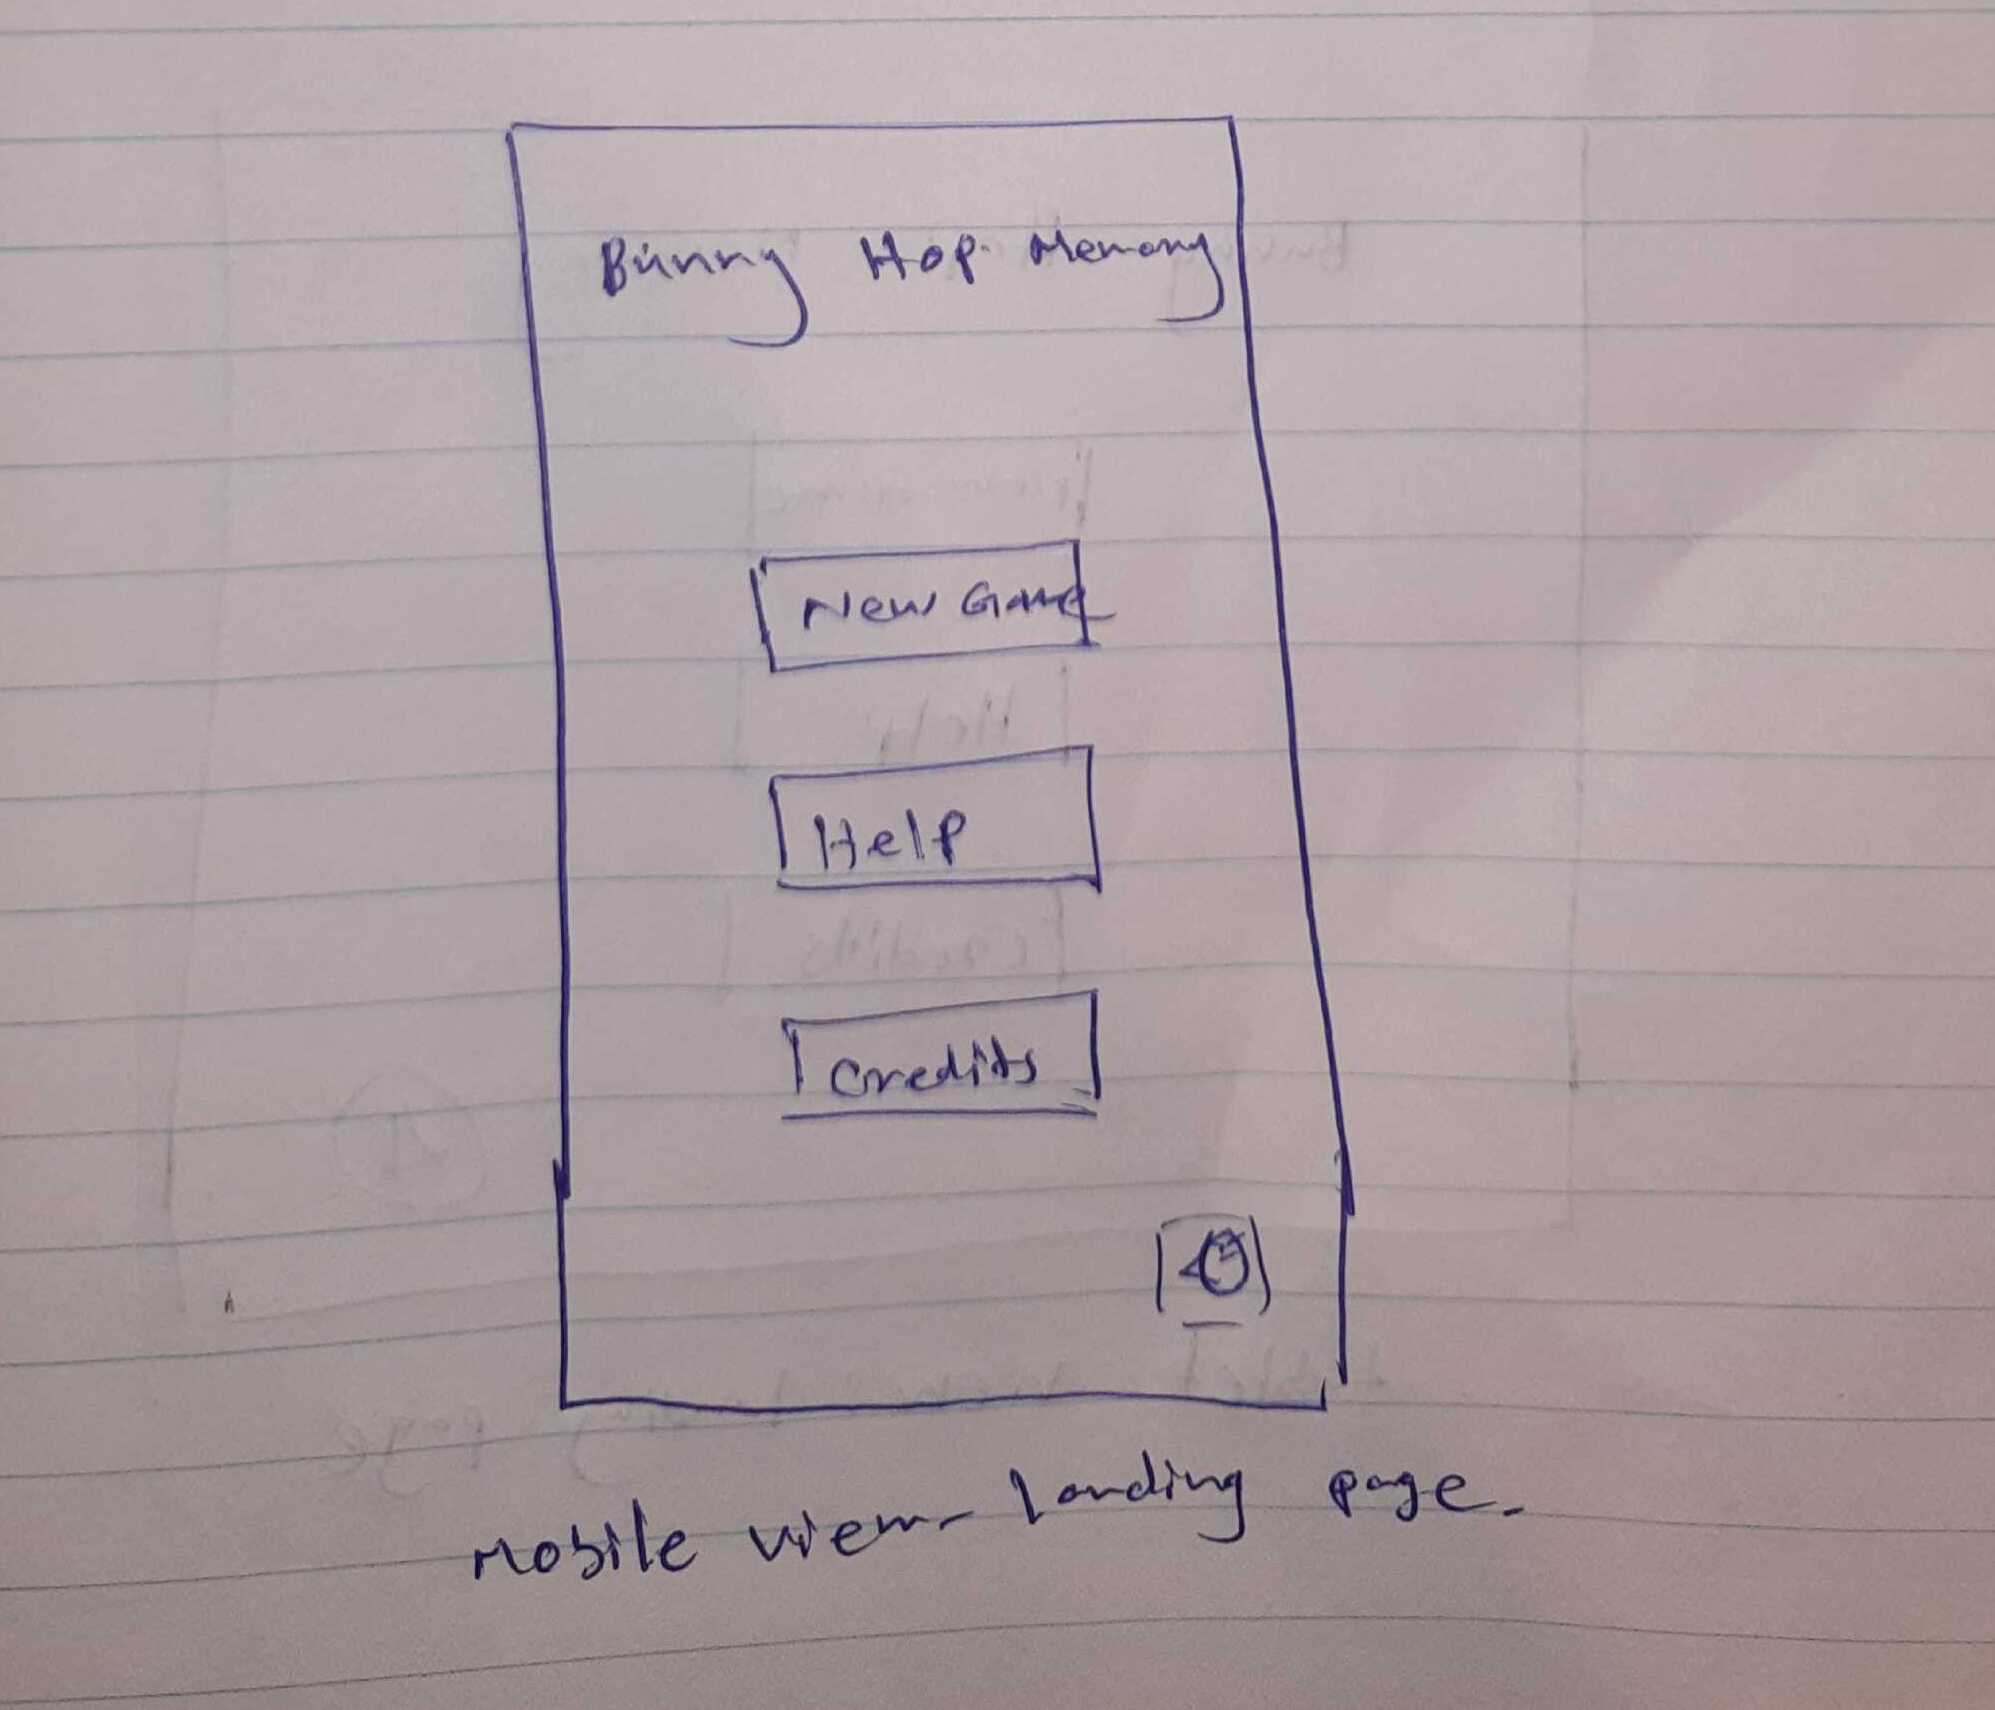 Bunny Hop Memory
New Game
Help
Credits
Mobile view - landing page.